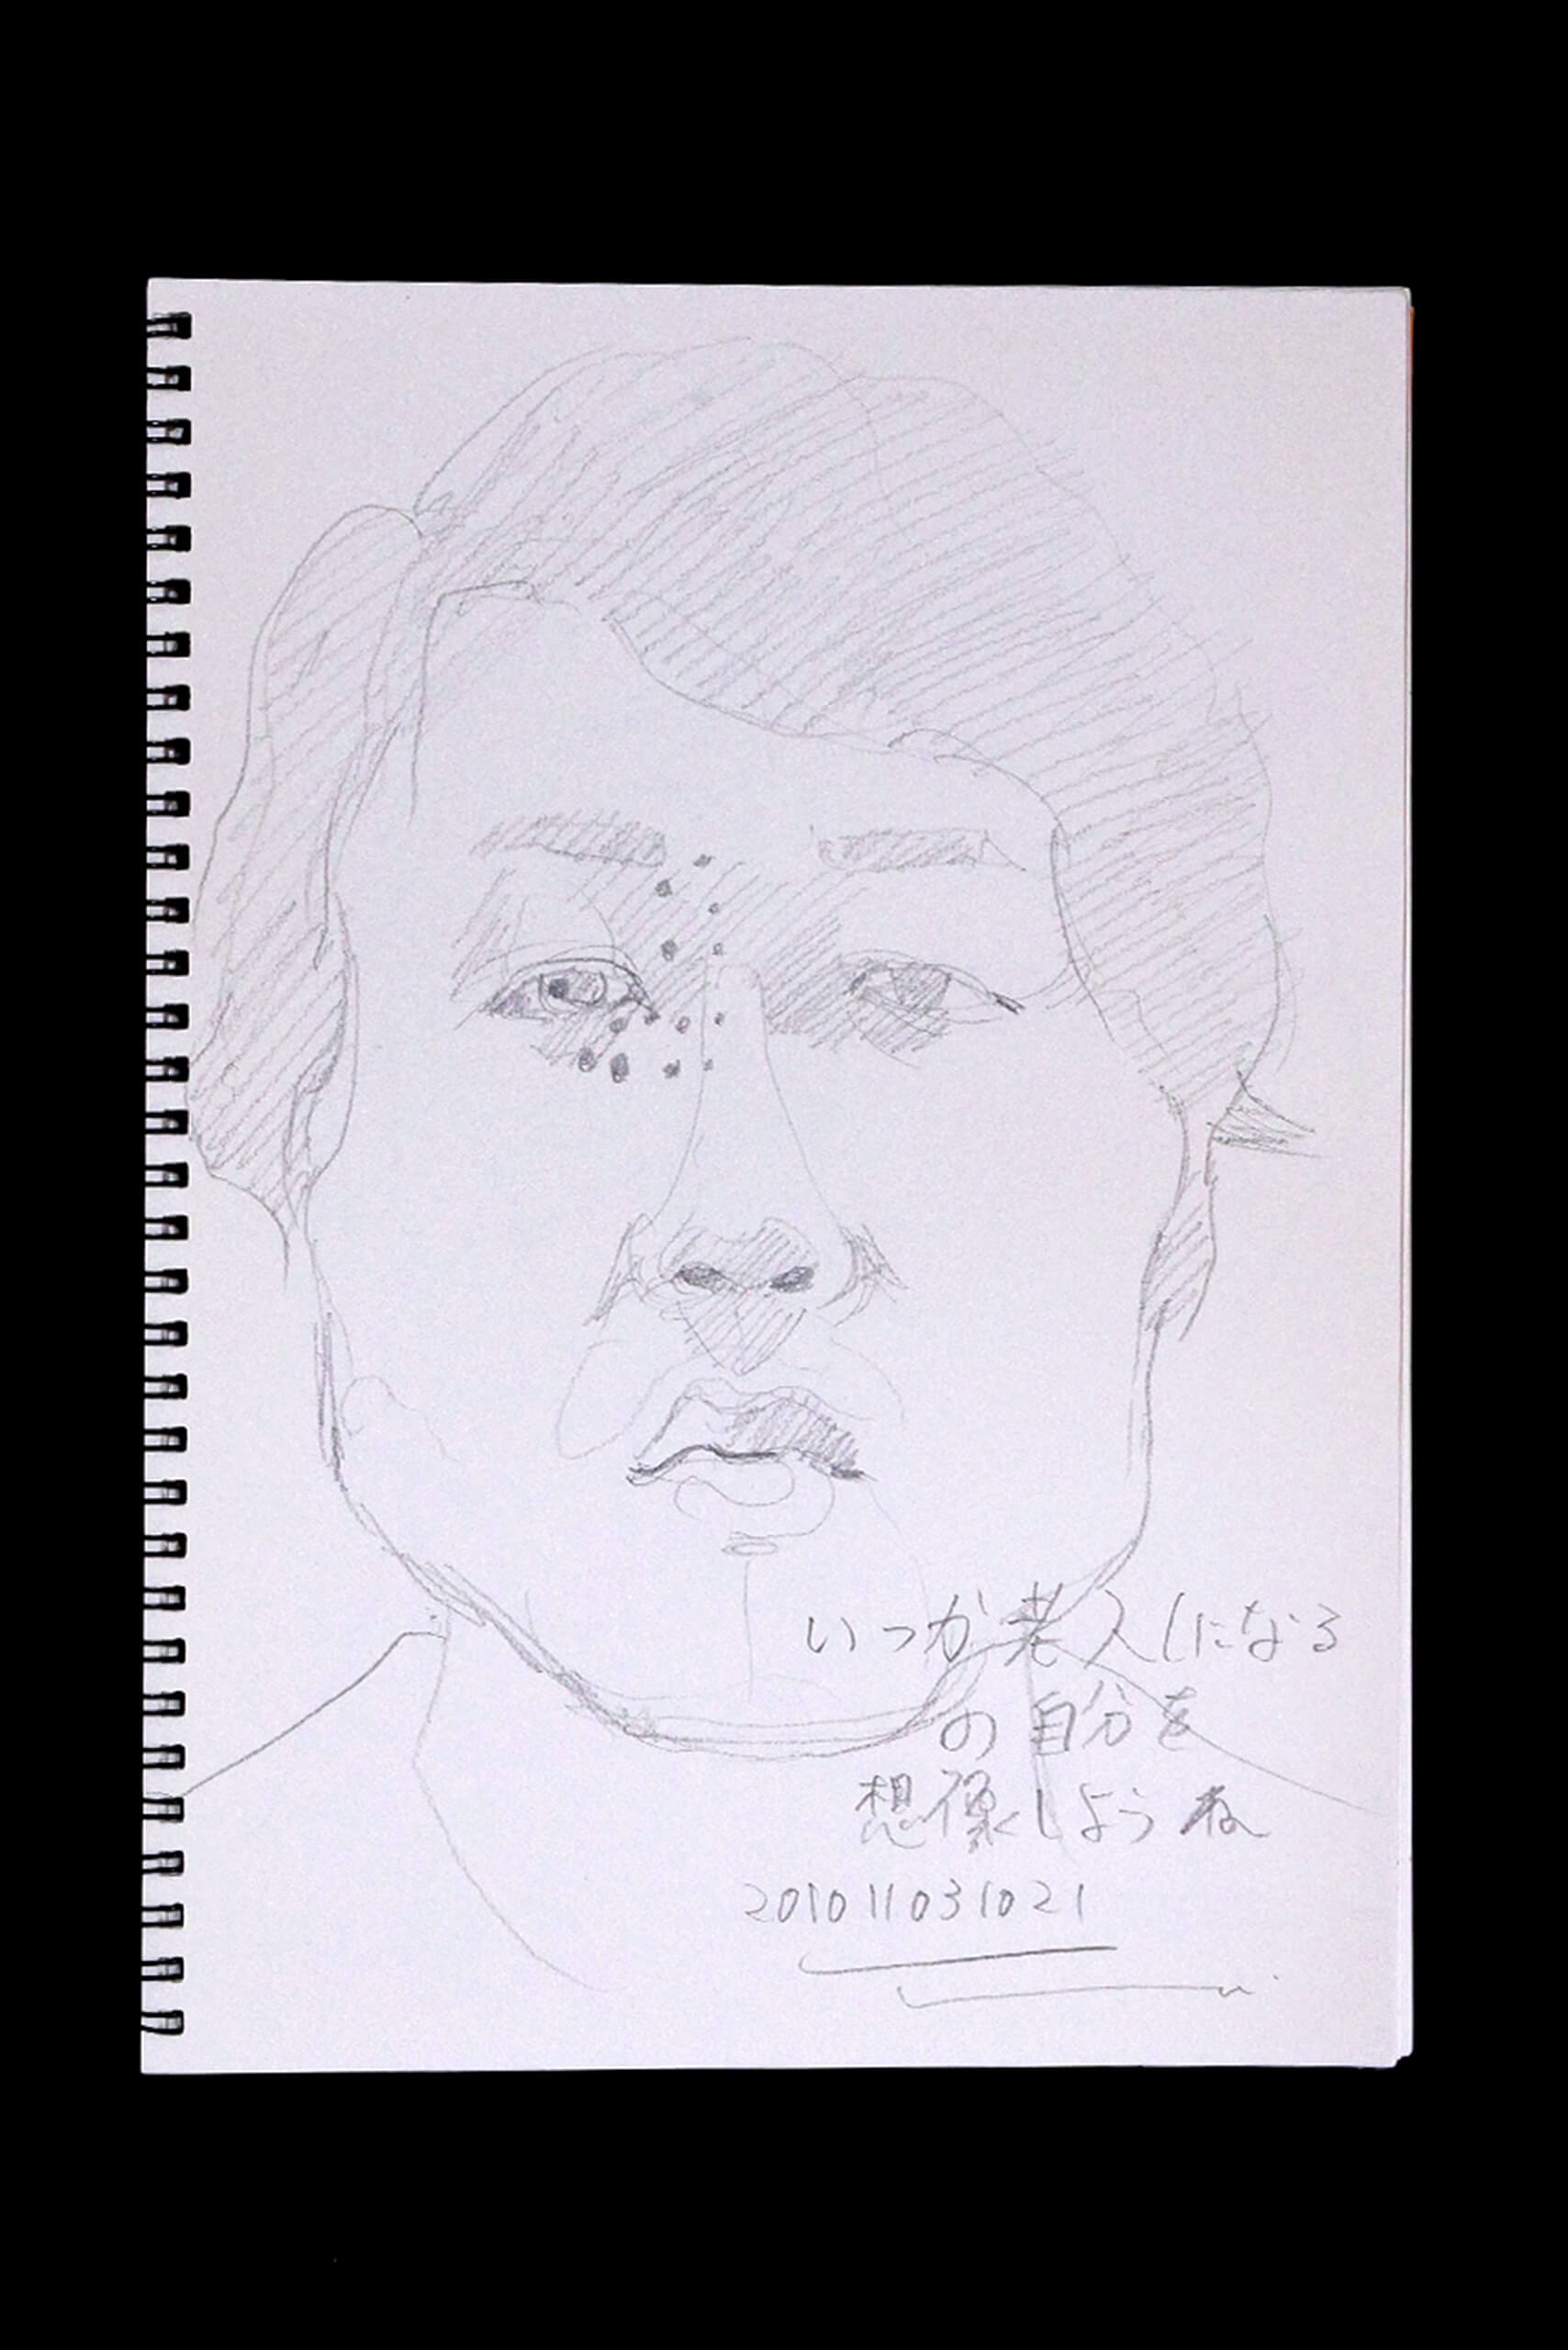 いつか老人になる
の自分を
想像しようね
201011031021